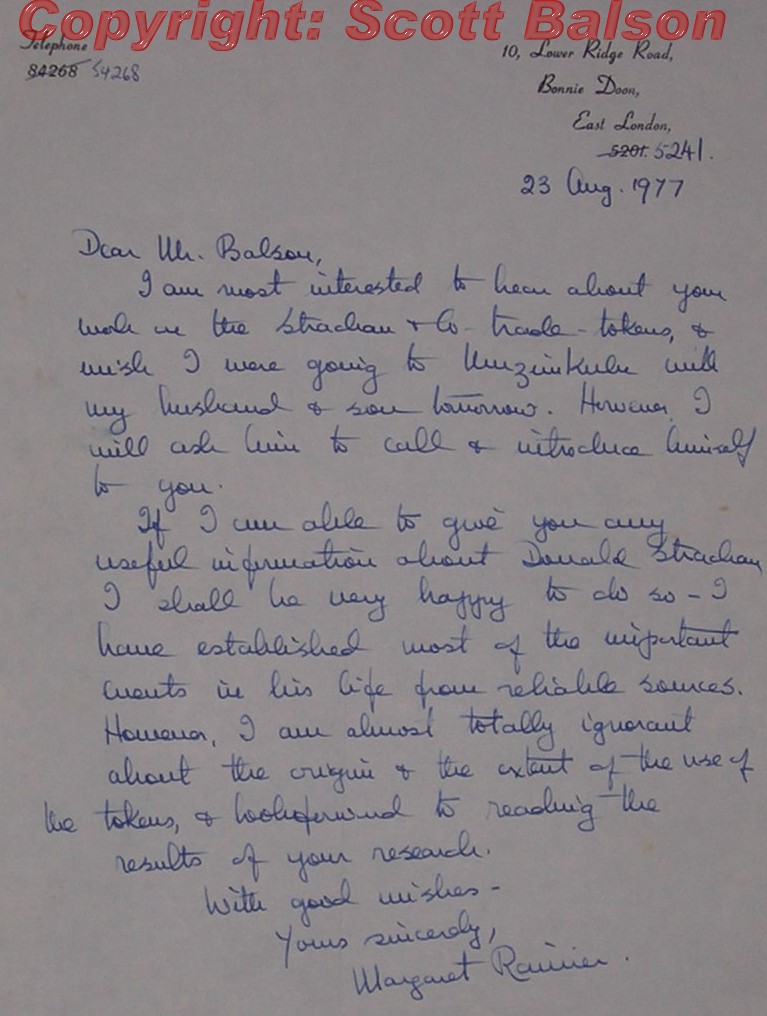 Copyright: Scott Balson
Telephone
84268 54268
10, Lower Ridge Road,
Bonnie Doon,
East London,
5201. 5241.
23 Aug. 1977
Dear Mr. Balson,
I am most interested to hear about your
work on the Strachan & Co. trade-tokens, &
wish I were going to Umzimkulu with
my husband & son tomorrow. However, I
will ask him to call & introduce himself
to you.
If I am able to give you any
useful information about Donald Strachan
I shall be very happy to do so - I
have established most of the important
events in his life from reliable sources.
However, I am almost totally ignorant
about the origin & the extent of the use of
the tokens, & look forward to reading the
results of your research.
With good wishes -
Yours sincerely,
Margaret Rainier.